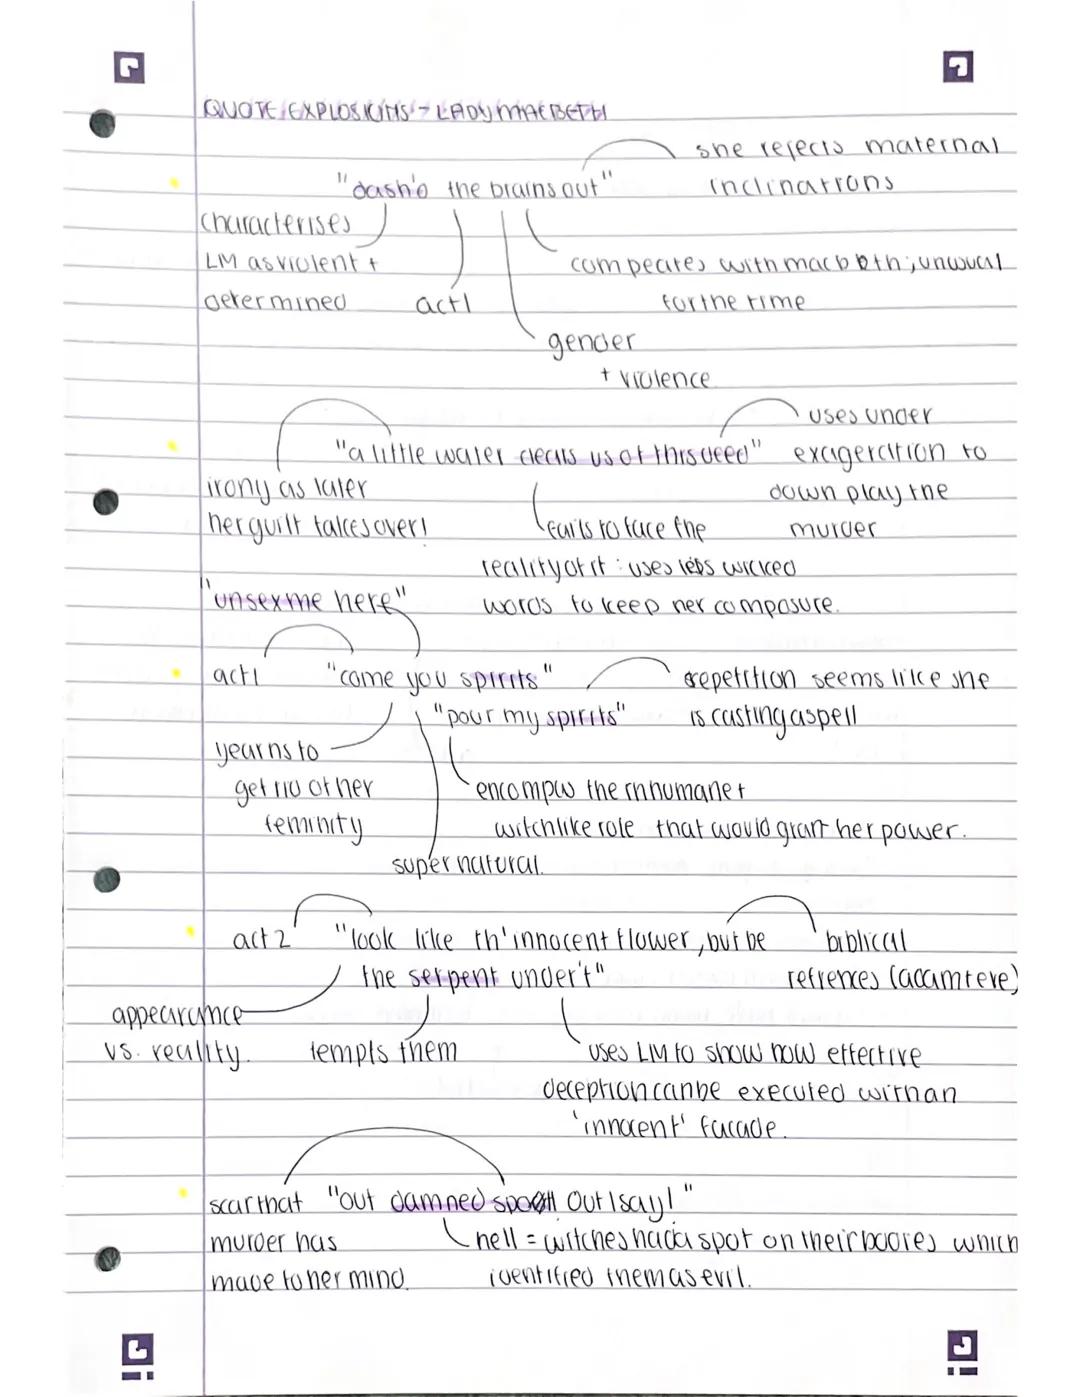 QUOTE EXPLOSIONS - LADY MACBETH
she rejects maternal
inclinations
"dash'd the brains out"
characterises
LM as violent +
determined
act 1
competes with macbeth ; unusual
for the time
gender
+ violence
uses under
exageration to
down play the
murder
"a little water clears us of this deed"
irony as later
her guilt takes over!
fails to face the
reality of it : uses less wicked
words to keep her composure.
"unsex me here"
act 1
"come you spirits"
"pour my spirits"
repetition seems like she
is casting a spell
yearns to
get rid of her
feminity
the inhumane +
witchlike role that would grant her power.
supernatural.
act 2
"look like th' innocent flower, but be
the serpent under't"
biblical
refrences (adam + eve)
appearance
vs. reality.
tempts them
uses LM to show how effective
deception can be executed with an
'innocent' facade.
scar that
murder has
made to her mind.
"out damned spot! Out I say!"
hell = witches had a spot on their bodies which
identified them as evil.